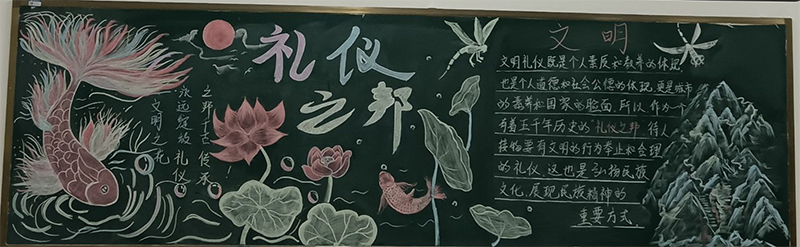 礼仪
之邦
之邦千古传承！
永远绽放礼仪
文明之花
文明
文明礼仪既是个人素质和教养的体现
也是个人道德和社会公德的体现.更是城市
的素养和国家的脸面.所以作为一个
有着五千年历史的"礼仪之邦"待人
接物要有文明的行为举止和合理
的礼仪.这也是弘扬民族
文化,展现民族精神的
重要方式.